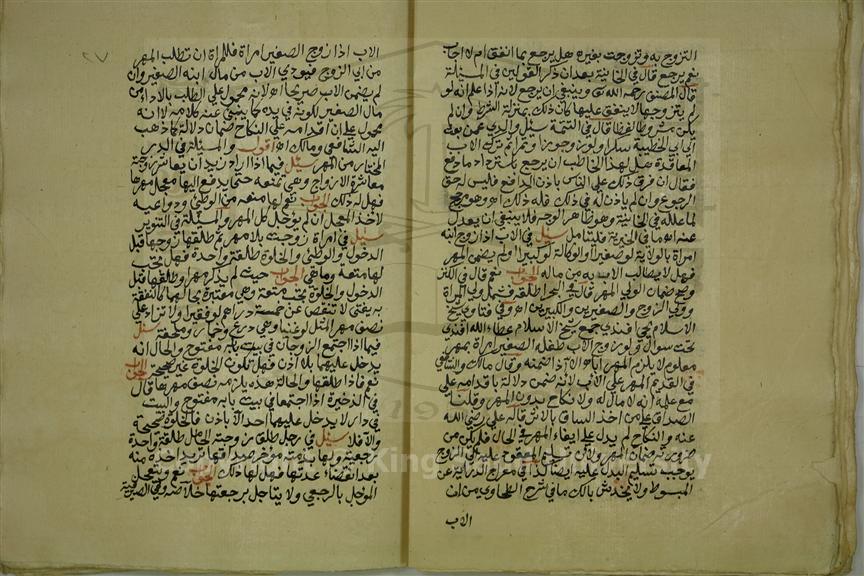 التزوج به وتزوجت بغيره هل يرجع بما انفق ام لا اجاب
نعم يرجع قال في الخانية بعد ان ذكر القولين في المسئلة
قال المصنف رحمه الله وينبغي ان يرجع لانه اذا علم انه لو
لم يتزوجها لا ينفق عليها كان ذلك بمنزلة الشرط وان لم
يكن مشروطا لفظا قال في التتمة سئل والدي عمن بعث
الى ابي الخطيبة سكرا ولوزا وجوزا وتمرا ثم ترك الاب
المعاقدة هل لهذا الخاطب ان يرجع باسترداد ما دفع
فقال ان فرق ذلك على الناس باذن الدافع فليس له حق
الرجوع وان لم ياذن له في ذلك فله ذلك اه وهو مرجح
لما علله في الخانية وهو ظاهر الوجه فلا ينبغي ان يعدل
عنه اه ما في الخيرية فليتامل سئل في الاب اذا زوج ابنه
امراة بالولاية لو صغيرا او الوكالة لو كبيرا ولم يضمن المهر
فهل لا يطالب الاب به من ماله الجواب نعم قال في الكنز
وصح ضمان الولي المهر قال في البحر اطلقه فشمل ولي المراة
وولي الزوج والصغيرين والكبيرين اه وفي فتاوى شيخ
الاسلام يحيى افندي جمع شيخ الاسلام عطاء الله افندي
تحت سؤال ولو زوج الاب طفله الصغير امراة بمهر
معلوم لا يلزم المهر اباه الا اذا ضمنه وقال مالك والشافعي
في القديم المهر على الاب لانه ضمن دلالة باقدامه على
مع علمه انه لا مال له ولا نكاح بدون المهر وقلنا
الصداق على من اخذ الساق بالاثر قاله علي رضي الله
عنه والنكاح لم يدل على ايفاء المهر في الحال فلم يكن من
ضرورته ضمان المهر ولان تسليم المعقود عليه الى الزوج
يوجب تسليم البدل عليه ايضا كذا في معراج الدراية عن
المبسوط ولا يخدش بالك ما في شرح الطحاوي من ان
الاب
الاب اذا زوج الصغير امراة فللمراة ان تطلب المهر
من ابي الزوج فيؤدي الاب من مال ابنه الصغير وان
لم يضمن الاب صريحا اه لانه محمول على الطلب بالاداء من
مال الصغير لكونه في يده كما ينبئ عنه كلامه لا انه
محمول على ان اقدامه على النكاح ضمان دلالة كما ذهب
اليه الشافعي ومالك اه اقول والمسئلة في الدر
المختار من المهر سئل فيما اذا اراد زيد ان يعاشر زوجته
معاشرة الازواج وهي تمنعه حتى يدفع اليها معجل مهرها
فهل له ذلك الجواب نعم لها منعه من الوطئ ودواعيه
لاخذ المعجل ان لم يؤجل كل المهر والمسئلة في التنوير
سئل في امراة زوجت بلا مهر ثم طلقها زوجها قبل
الدخول والوطئ والخلوة طلقة واحدة فهل تجب
لها متعة وما هي الجواب حيث لم يذكر مهرا وطلقها قبل
الدخول والخلوة تجب متعة وهي معتبرة بحالهما كالنفقة
به يفتى لا تنقص عن خمسة دراهم لو فقيرا ولا تزاد على
نصف مهر المثل لو غنيا وهي درع وخمار وملحفة سئل
فيما اذا اجتمع الزوجان في بيت بابه مفتوح والحال انه
يدخل عليهما بلا اذن فهل تكون الخلوة غير صحيحة الجواب
نعم فاذا طلقها والحالة هذه يلزمه نصف مهرها قال
في الذخيرة اذا اجتمعا في بيت بابه مفتوح والبيت
في دار لا يدخل عليهما احد الا باذن فالخلوة صحيحة
والا فلا سئل في رجل طلق زوجته الحامل طلقة واحدة
رجعية ولها بذمته مؤخر صداقها تريد اخذه منه
بعد انقضاء عدتها فهل لها ذلك الجواب نعم ويتعجل
المؤجل بالرجعي ولا يتاجل برجعتها خلاصة وفي الصيرفية